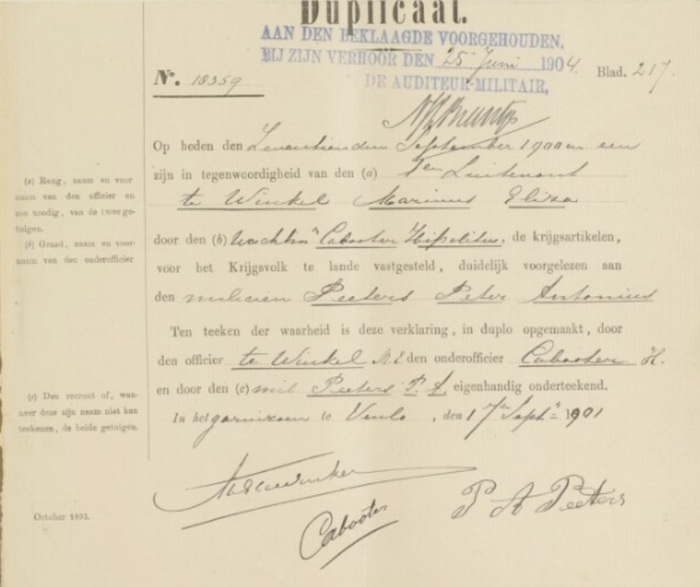 Duplicaat.
AAN DEN BEKLAAGDE VOORGEHOUDEN,
BIJ ZIJN VERHOOR DEN 25 Juni 1904.
DE AUDITEUR-MILITAIR,
No. 18359
Blad. 217.
Op heden den Zeventienden September 1900 en een
zijn in tegenwoordigheid van den (a) 1en Luitenant
te Winkel Marinus Eliza
door den (b) Wachtmr Cabooter Hipolitus, de krijgsartikelen,
voor het Krijgsvolk te lande vastgesteld, duidelijk voorgelezen aan
den milicien Peeters Peter Antonius
Ten teeken der waarheid is deze verklaring, in duplo opgemaakt, door
den officier te Winkel M.E den onderofficier Cabooter H.
en door den (c) mil Peeters P. A. eigenhandig onderteekend.
In het garnizoen te Venlo, den 17en Septr 1901
(a) Rang, naam en voornaam van den officier en zoo noodig, van de twee getuigen.
(b) Graad, naam en voornaam van den onderofficier
(c) Den recruut of, wanneer deze zijn naam niet kan teekenen, de beide getuigen.
Cabooter
P A Peeters
October 1893.